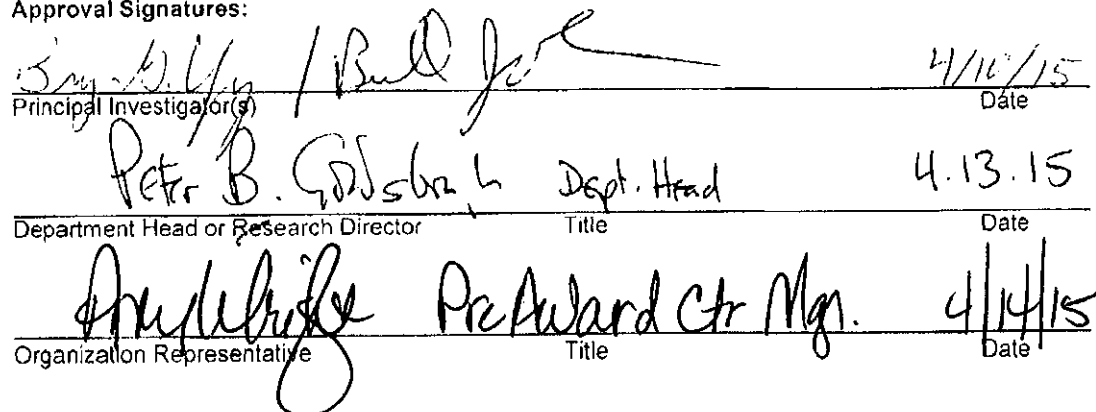 Approval Signatures:
/ 4/10/15
Principal Investigator(s) Date
Peter B. Goldsbrough Dept. Head 4.13.15
Department Head or Research Director Title Date
PreAward Ctr Mgr. 4/14/15
Organization Representative Title Date